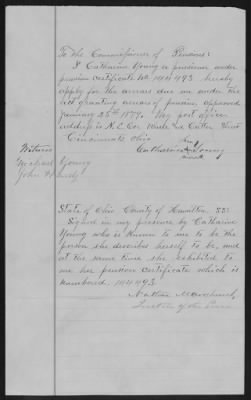 To the Commissioner of Pensions:
I Catharine Young a pensioner under
pension certificate No 144493 hereby
apply for the arrears due me under the
act granting arrears of pension approved
January 25th 1879. My post office
address is N.E. Cor Wade and Cutter Street
Cincinnati Ohio
her
Witness Catharine x Young
mark
Michael Young
John
State of Ohio County of Hamilton SS:
Signed in my presence by Catharine
Young who is known to me to be the
person she describes herself to be, and
at the same time she exhibited to
me her pension certificate which is
numbered 144493.
Nathan Marchant
Justice of the Peace